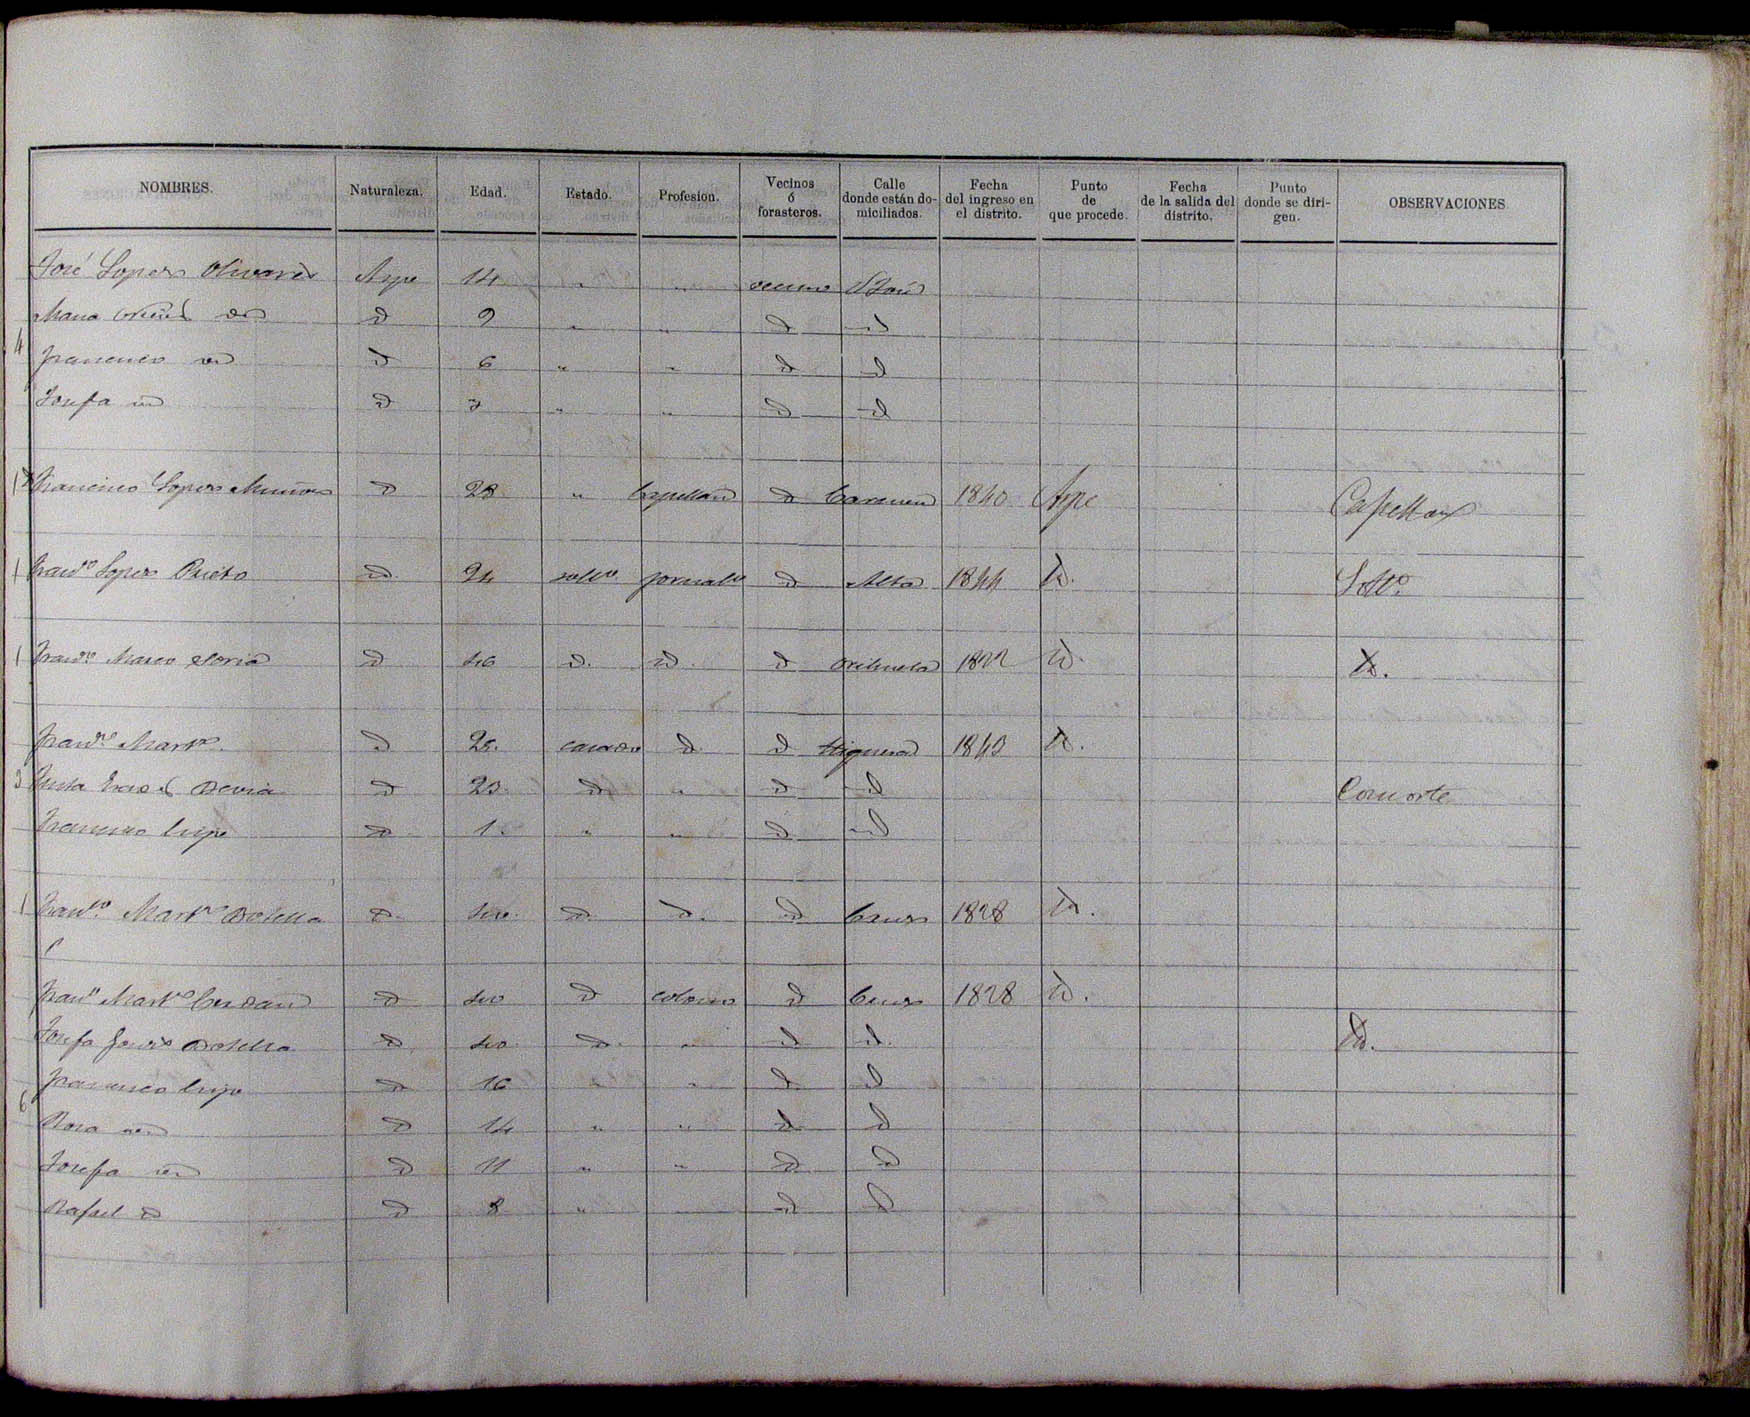 NOMBRES. Naturaleza. Edad. Estado. Profesion. Vecinos ó forasteros. Calle donde están domiciliados. Fecha del ingreso en el distrito. Punto de que procede. Fecha de la salida del distrito. Punto donde se dirigen. OBSERVACIONES
José Lopez Olivares Aspe 14 " " vecino S José
Maria id d 9 " " d id
4
Francisco id d 6 " " d d
Josefa id d 3 " " d id
1 Francisco Lopez Muñoz d 28 " Capellan d Carmen 1840 Aspe Capellan
1 Franco Lopez Prieto id. 24 soltº jornalº d Alta 1844 id. Soltº
1 Franco Marco Soria d 46 d. id. d Orihuela 1822 id. id.
Franco Martz d 25. casado d. d Higuera 1843 id.
3 d 23. d " d d Consorte
Francisco hijo d 1. " " d id
1 Franco Martz Botella d. 40. d d. d Cruz 1828 id.
Franco Martz Cerdan d 40 d colono d Cruz 1828 id.
Josefa Botella d 40. d. " d d. id.
Francisco hijo d 16 " " d d
6
Rosa id d 14 " " d d
Josefa id d 11 " " d d
Rafael id d 8 " id d